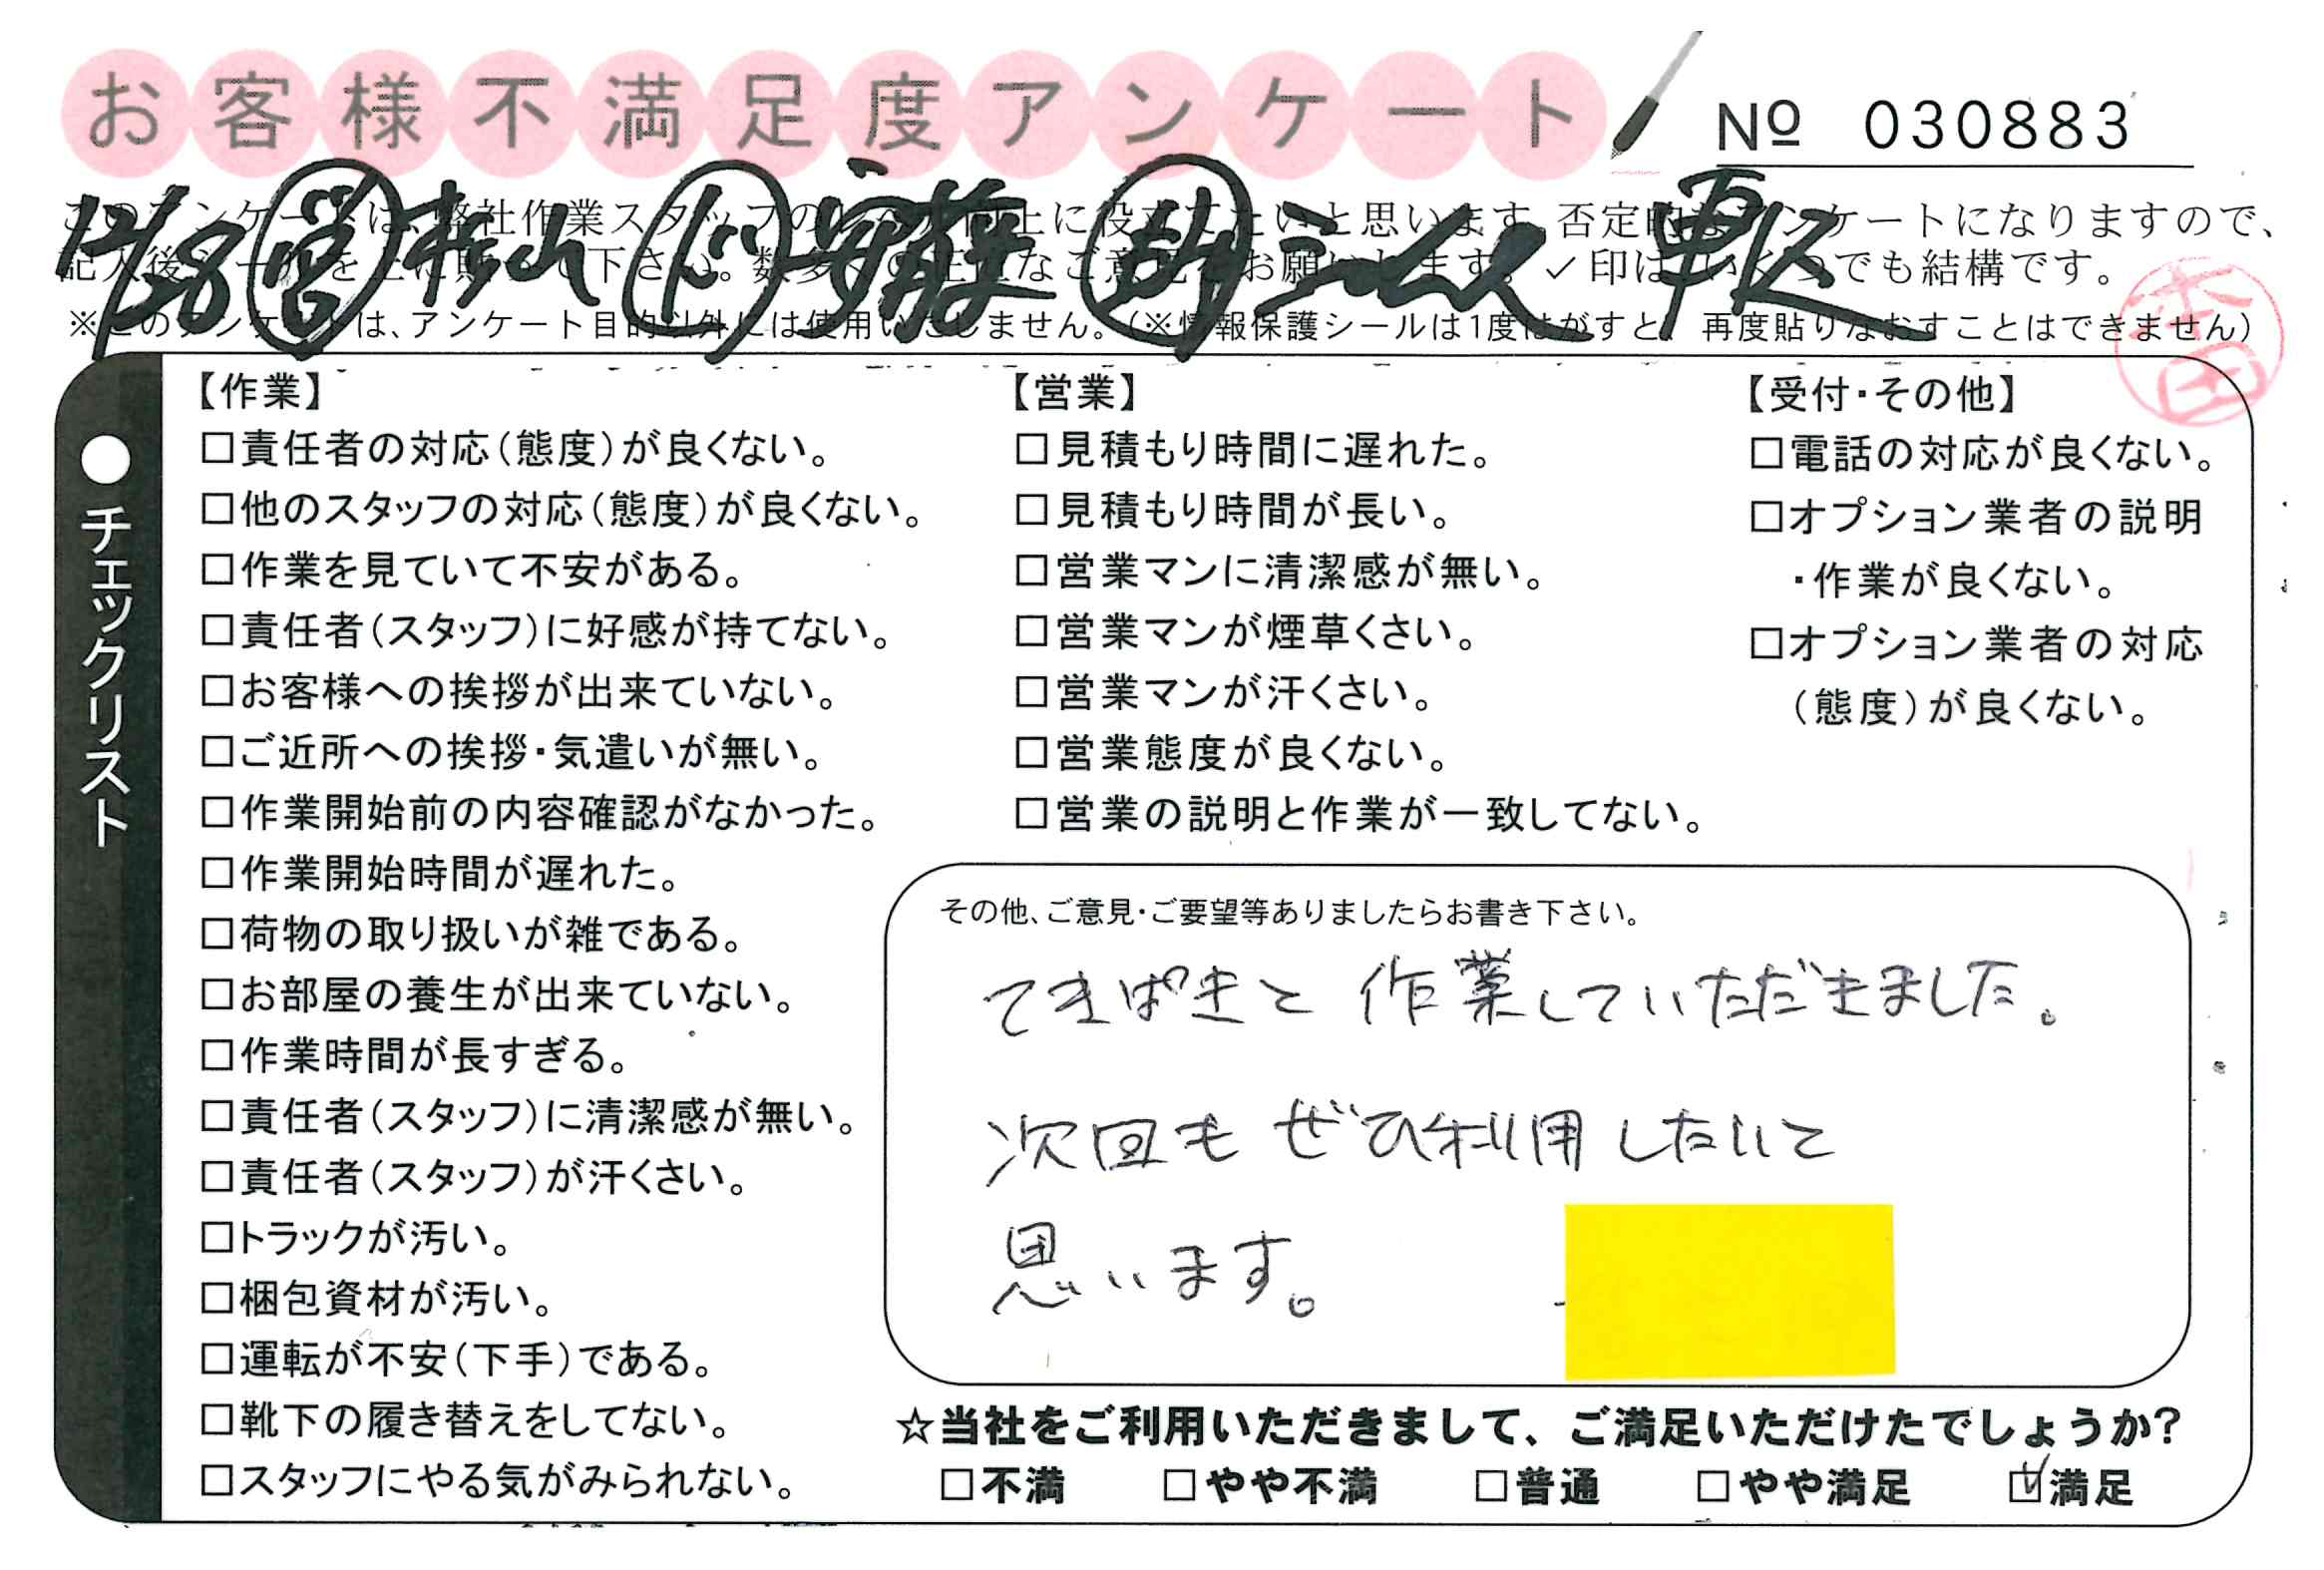 お客様不満足度アンケート
№ 030883
12/8 営 松山 ド 安藤 助
※このアンケートは、アンケート目的以外には使用いたしません。(※情報保護シールは1度はがすと、再度貼りなおすことはできません)
●チェックリスト
【作業】
□責任者の対応(態度)が良くない。
□他のスタッフの対応(態度)が良くない。
□作業を見ていて不安がある。
□責任者(スタッフ)に好感が持てない。
□お客様への挨拶が出来ていない。
□ご近所への挨拶・気遣いが無い。
□作業開始前の内容確認がなかった。
□作業開始時間が遅れた。
□荷物の取り扱いが雑である。
□お部屋の養生が出来ていない。
□作業時間が長すぎる。
□責任者(スタッフ)に清潔感が無い。
□責任者(スタッフ)が汗くさい。
□トラックが汚い。
□梱包資材が汚い。
□運転が不安(下手)である。
□靴下の履き替えをしてない。
□スタッフにやる気がみられない。
【営業】
□見積もり時間に遅れた。
□見積もり時間が長い。
□営業マンに清潔感が無い。
□営業マンが煙草くさい。
□営業マンが汗くさい。
□営業態度が良くない。
□営業の説明と作業が一致してない。
【受付・その他】
□電話の対応が良くない。
□オプション業者の説明
・作業が良くない。
□オプション業者の対応
(態度)が良くない。
その他、ご意見・ご要望等ありましたらお書き下さい。
てきぱきと作業していただきました。
次回もぜひ利用したいと
思います。
☆当社をご利用いただきまして、ご満足いただけたでしょうか?
□不満 □やや不満 □普通 □やや満足 ☑満足